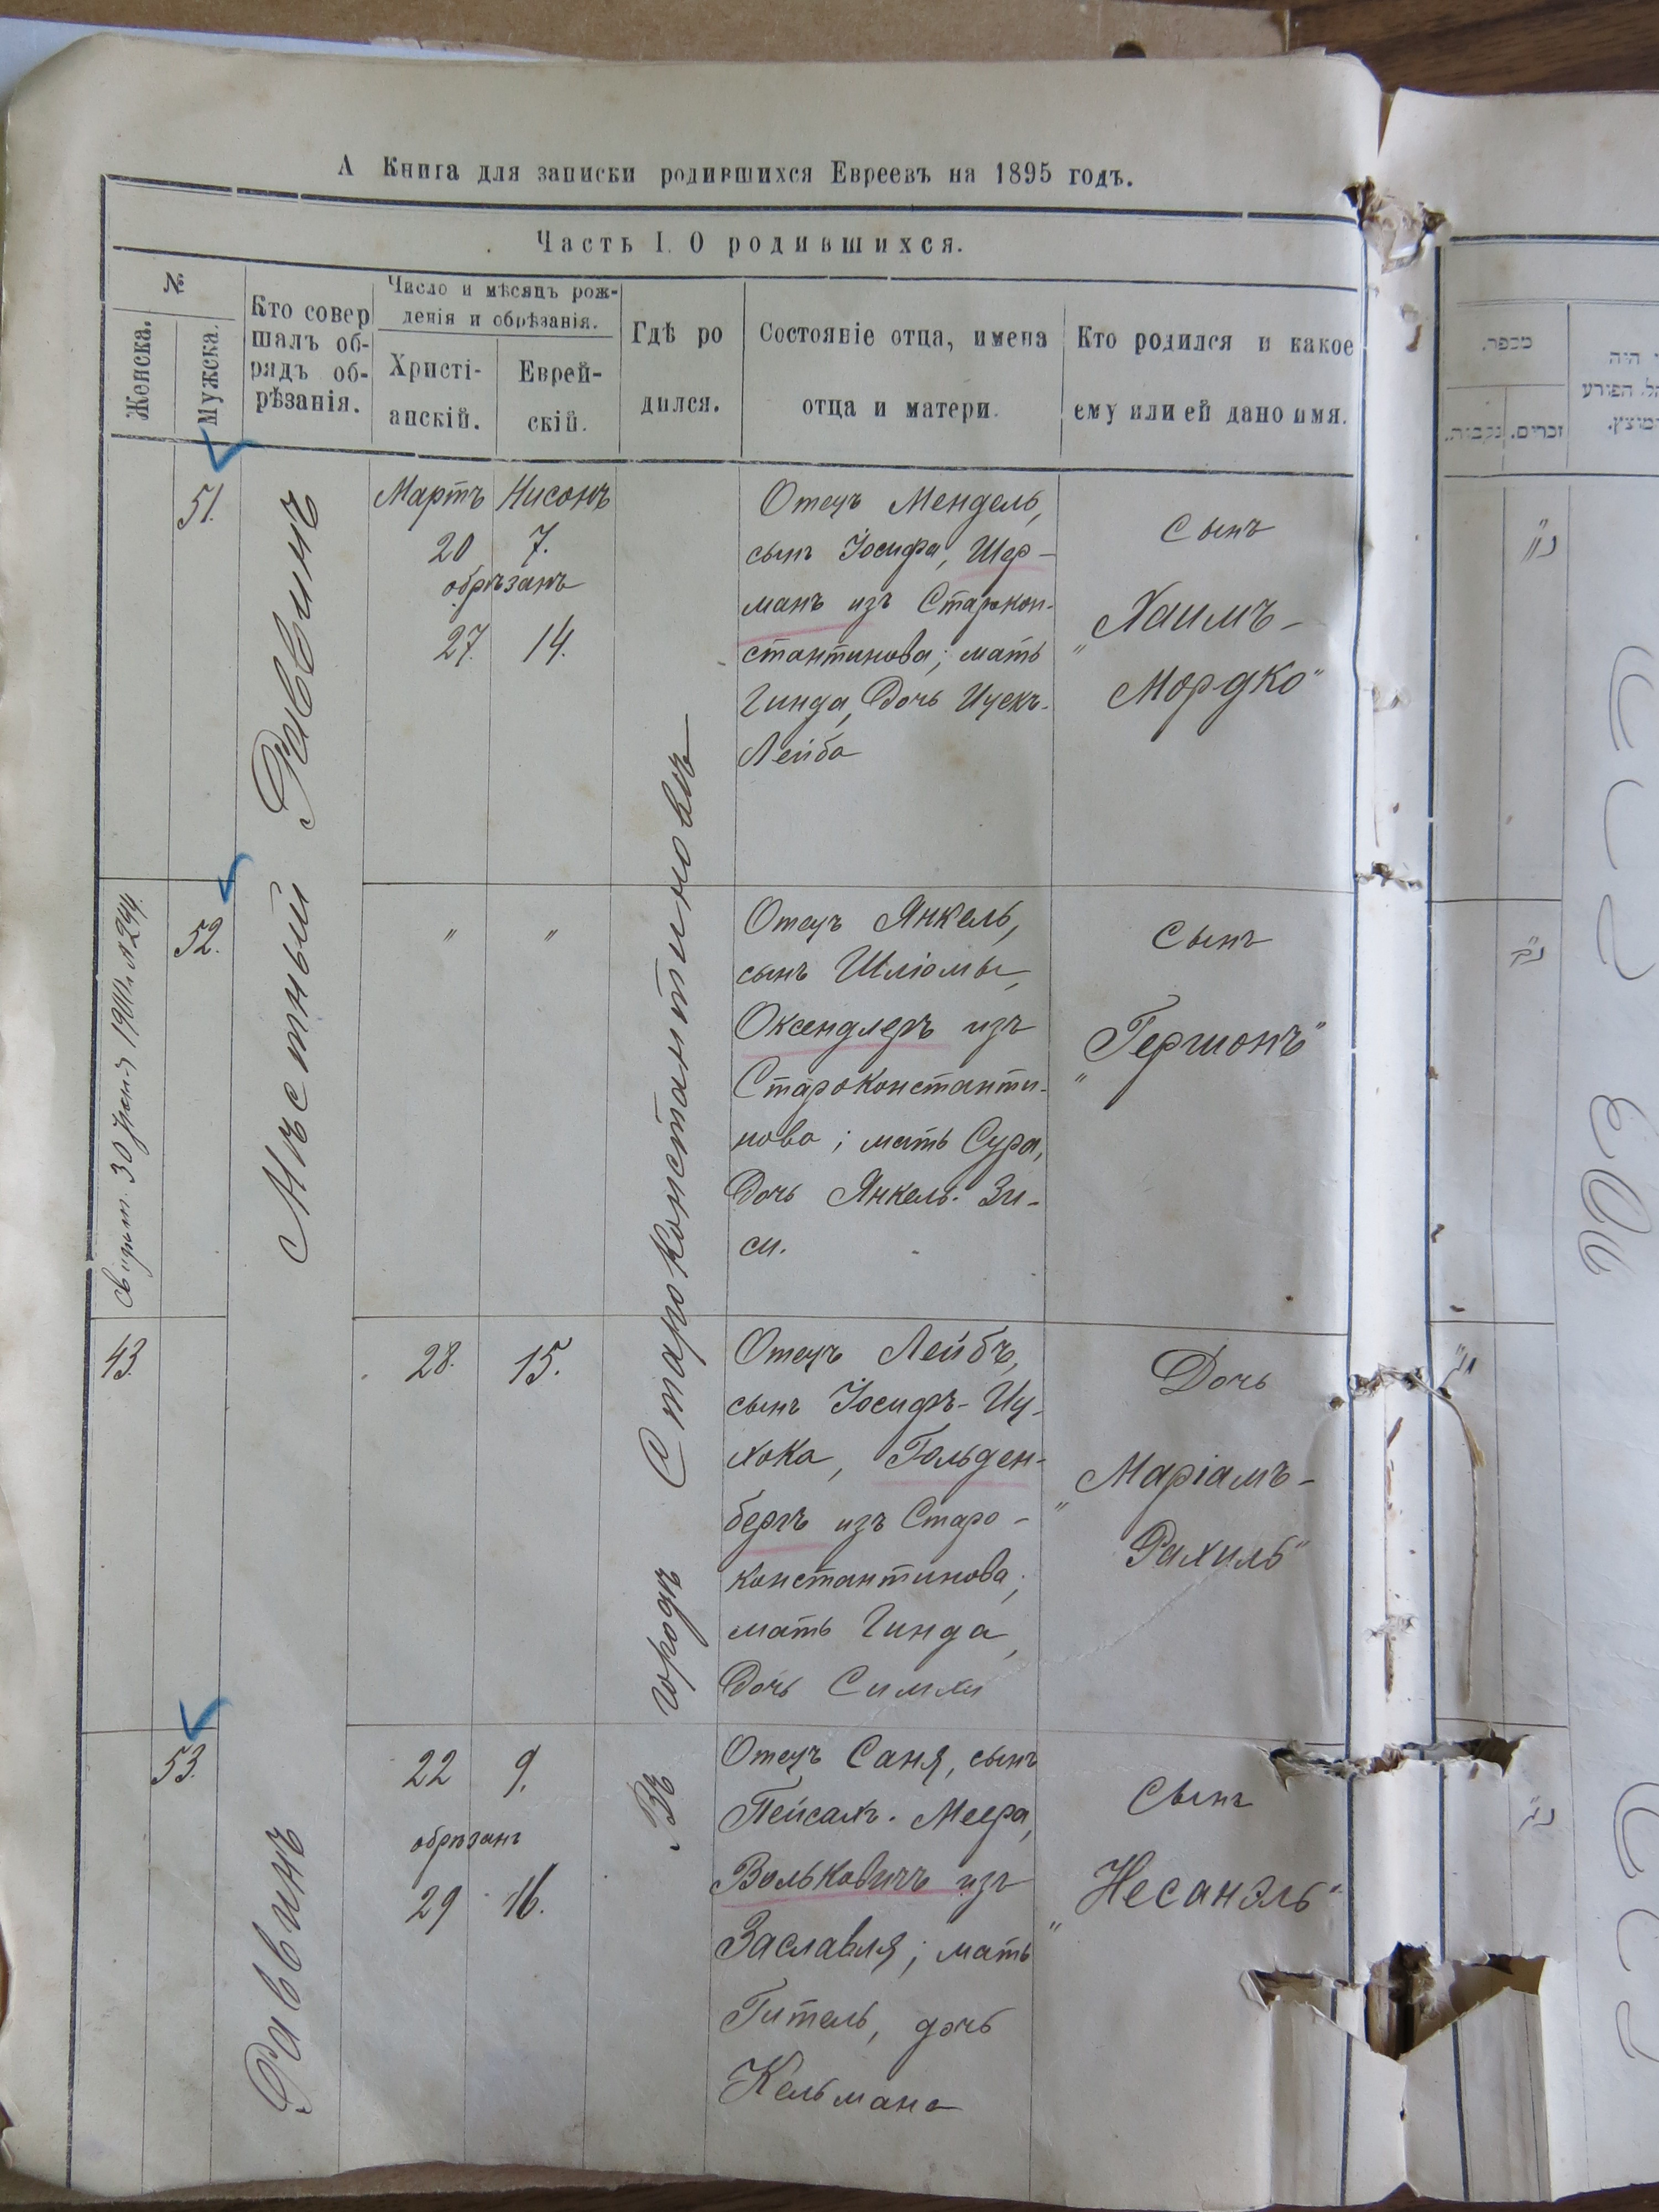 А Книга для записки родившихся Евреевъ на 1895 годъ.
Часть I. О родившихся.
№
Женска.
Мужска.
Кто совер
шалъ об-
рядъ об-
рѣзанія.
Число и мѣсяцъ рож-
денія и обрѣзанія.
Христі-
анскій.
Еврей-
скій.
Гдѣ ро
дился.
Состояніе отца, имена
отца и матери.
Кто родился и какое
ему или ей дано имя.
Мѣстный Раввинъ
Въ городѣ Староконстантиновѣ
51.
Мартъ Нисонъ
20 7.
обрѣзанъ
27. 14.
Отецъ Мендель,
сынъ Іосифа, Шер-
манъ изъ Старокон-
стантинова; мать
Гинда, Дочь Ицекъ-
Лейба
Сынъ
"Хаимъ-
Мордко"
Свидет. 30 1910 г. № 244.
52.
" "
Отецъ Янкель,
сынъ Шліомы,
Оксендлеръ изъ
Староконстанти-
нова; мать Сура,
Дочь Янкель-Зи-
си.
Сынъ
"Гершонъ"
43.
28. 15.
Отецъ Лейбъ,
сынъ Іосифъ-Иц-
хока, Гольден-
бергъ изъ Старо-
константинова;
мать Гинда,
Дочь Симхи
Дочь
"Маріамъ-
Рахиль"
53.
Раввинъ
22 9.
обрѣзанъ
29 16.
Отецъ Саня, сынъ
Пейсахъ-Меера,
Вольковичъ изъ
Заславля; мать
Гитель, дочь
Кельмана
Сынъ
"Несанэль"
מספר.
זכרים.
נקבות.
היה
הפורע
ומוצץ.
נ"א
נ"ב
מ"ג
נ"ג